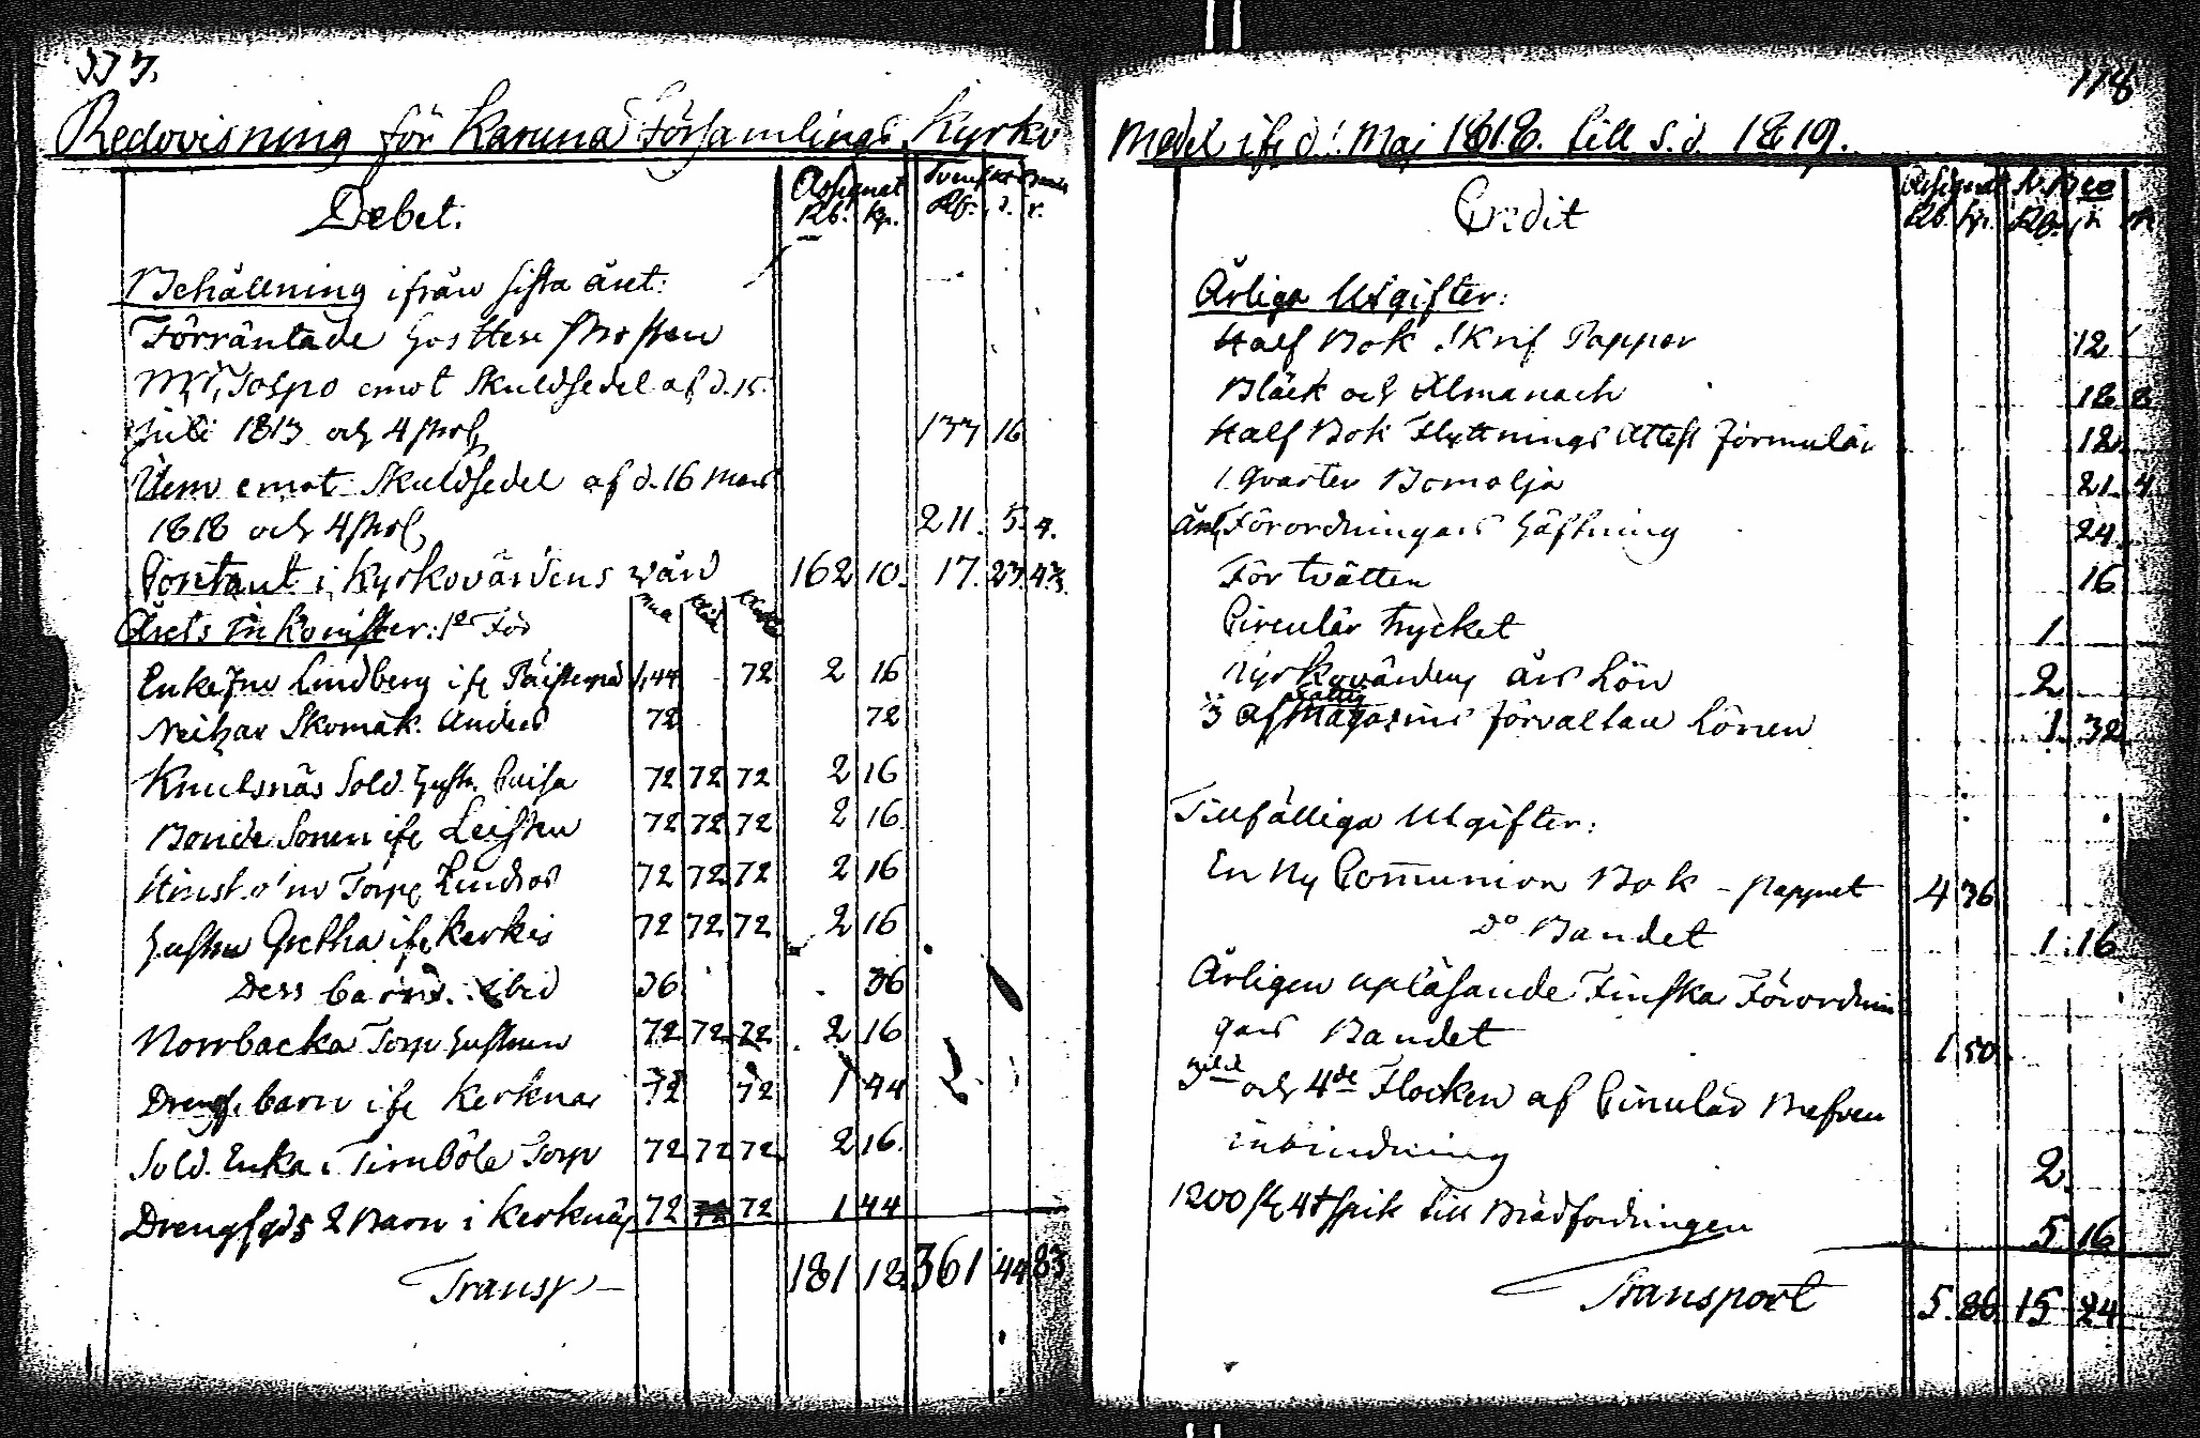 Redovisning för Karuna Församlings Kyrko
Debet.
Assignat
Rb. kp.
Behållning ifrån sista året:
Förräntade hos Herr Prosten
emot Skuldsedel af d. 15.
Juli 1813 och 4 proC 133 16
emot Skuldsedel af d. 16 Mars
1818 och 4 proC 211. 5. 4.
Contant i Kyrkovärdens vård 162 10. 17. 23.
Årets Inkomster: För
Enkefru Lindberg ifr 1,44 72 2 16
Skomak. Anders 72 72
Knutsnäs Sold. hustr. Caisa 72 72 72 2 16
Bonde Sonen ifr 72 72 72 2 16
72 72 72 2 16
Hustru Gretha ifr Kerkis 72 72 72 2 16
Dess barn ibid 36 36
Norrbacka Torp hustrun 72 72 72 2 16
Drengs barn ifr Kerknäs 72 72 1 44
Sold. Enka i Timböle Torp 72 72 72 2 16.
2 Barn i Kerknäs 72 72 72 1 44
Transp 181 12. 361 44
118
Medel ifr d. 1 Maj 1818. till s. d. 1819.
Credit
Assignat
Rb. kp.
Årliga Utgifter:
Half Bok Skrif Papper 12
Bläck och Almanach 18 8
Half Bok Flyttnings Attest Formulär 12
1 Qvarter Bomolja 21. 4
Förordningars häftning 24
För tvätten 16
Circulär trycket 1.
Kyrkovärdens års Lön 2
af fattig Magasins förvaltare Lönen 1. 32
Tillfälliga Utgifter:
En Ny Communion Bok - Pappret 4 36
do Bandet 1. 16
Årligen upläsande Finska Förordnin
gars Bandet 1 50
och 4de Flocken af Circulär Brefven
inbindning 2.
1200 st 4t spik till Brädfordringen 5 16
Transport 5. 86 15 24